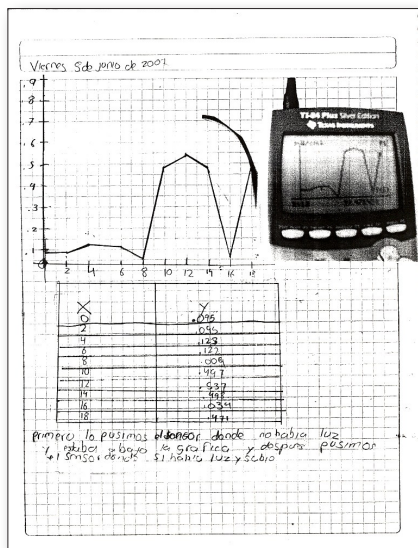 Viernes 5 de junio de 2007
.9
.8
.7
.6
.5
.4
.3
.2
.1
0 2 4 6 8 10 12 14 16 18
TI-84 Plus Silver Edition
Texas Instruments
X Y
0 .095
2 .095
4 .123
6 .122
8 .009
10 .497
12 .537
14 .498
16 .034
18 .491
primero lo pusimos el sensor donde no habia luz
y estaba abajo la grafica y despues pusimos
el sensor donde si habia luz y subio